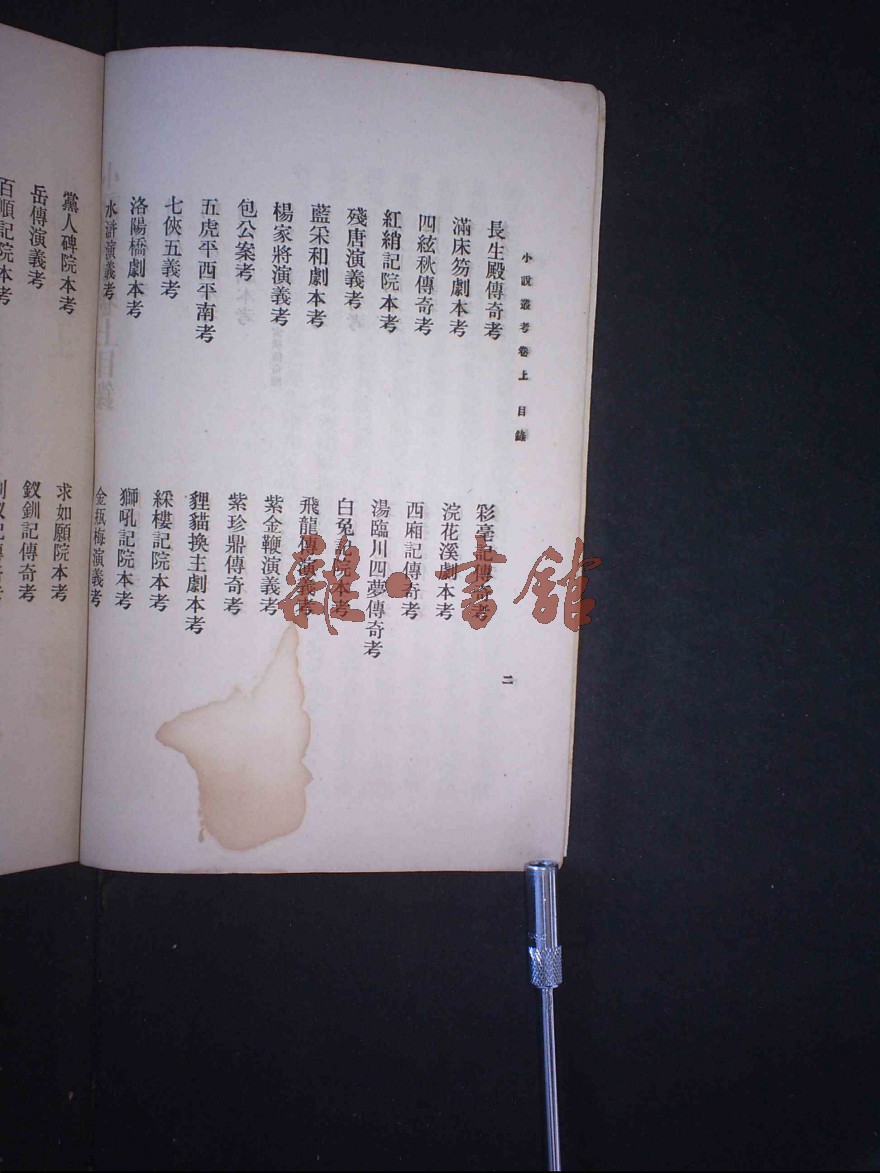 小說叢考卷上 目錄
二
長生殿傳奇考
彩毫記傳奇考
滿床笏劇本考
浣花溪劇本考
四絃秋傳奇考
西廂記傳奇考
紅綃記院本考
湯臨川四夢傳奇考
殘唐演義考
白兔記院本考
藍采和劇本考
飛龍傳演義考
楊家將演義考
紫金鞭演義考
包公案考
紫珍鼎傳奇考
五虎平西平南考
貍貓換主劇本考
七俠五義考
綵樓記院本考
洛陽橋劇本考
獅吼記院本考
水滸演義考
金瓶梅演義考
黨人碑院本考
求如願院本考
岳傳演義考
釵釧記傳奇考
百順記院本考
雜·書館